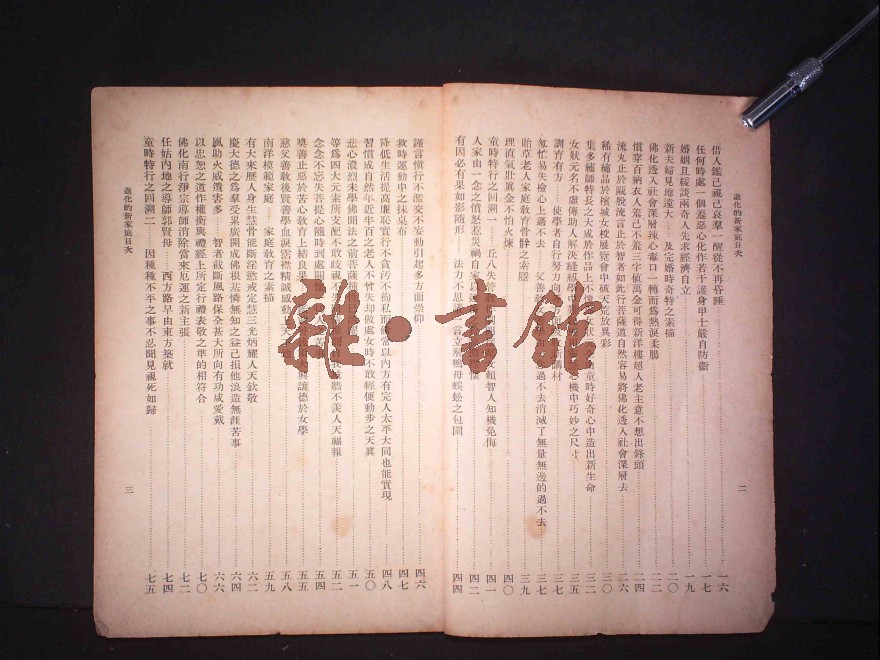 進化的新家庭目次
二
借人鑑己視己哀羣一醒從不再昏睡 一六
任何時處一個羞惡心化作若干護身甲士嚴自防衞 一七
婚姻且緩談兩奇人先求經濟自立 一九
新夫婦見地遠大 及完婚時奇特之素描 二〇
佛化透入社會深層辣心毒口一轉而爲熱淚柔腸 二二
慣穿百衲衣人羞己不羞三字値萬金可得新洋樓超人老主意不想出鋒頭 二四
流丸止於甌臾流言止於智者如此行菩薩道自然容易將佛化透入社會深層去 二六
稀有繡品於檳城女校展覽會中破天荒放異彩 三〇
集多繡師特長之大成於作品上不愧 女狀 童時好奇心中造出新生命 三二
女狀元名不虛傳助人解決縫紉學中 機中巧妙之尺寸 三五
調育有方 使學者自行努力向 新講材 三七
匆忙易失檢心上過不去 父善教 過不去消減了無量無邊的過不去 三七
貽草老人家庭教育骨幹之索隱 三九
理直氣壯眞金不怕火煉 四〇
童時特行之回溯一 丘八失 智人知機免侮 四一
人家由一念之憤怒惹災禍自家以 四二
有因必有果如影隨形 法力不思議 言立解鴨母蜈蚣之包圍 四四
謹言愼行不濫交不妄動引起多方面崇仰 四六
救時運動中之抹桌布 四七
降低生活提高廉恥實行不貪汚不徇私 常以內方有完人太平大同也能實現 四八
習慣成自然年近半百之老人不曾失却做處女時不敢輕便動步之天眞 五〇
悲心濃烈未學佛聞法之前菩薩種性 五一
等爲四大元素所支配不敢歧視 不羨人天福報 五二
念念不忘失菩提心隨時到處 五四
獎善止惡於苦心教育上結良果 讓德於女學 五五
慈父善教後賢善學血淚雲襟精誠感動 五八
南洋模範家庭 家庭教育之素描 五九
有大來歷人身生慧骨能斷淫慾戒定慧三光炳耀人天欽敬 六二
慶大德之爲羣受累廣開成佛根基憐無知之益己損他浪造無涯苦事 六四
風助火威遭害多 智者截斷風路保全甚大所向有功咸愛戴 六六
以忠恕之道作權衡與禮經上所定行禮表敬之準的相符合 七〇
佛化南行淨宗導師消除當來厄運之新主張 七二
任姑內地之導師郭賢母 西方路早由東方築就 七四
童時特行之回溯二 因種種不平之事不忍聞見視死如歸 七五
進化的新家庭目次
三
雜·書館